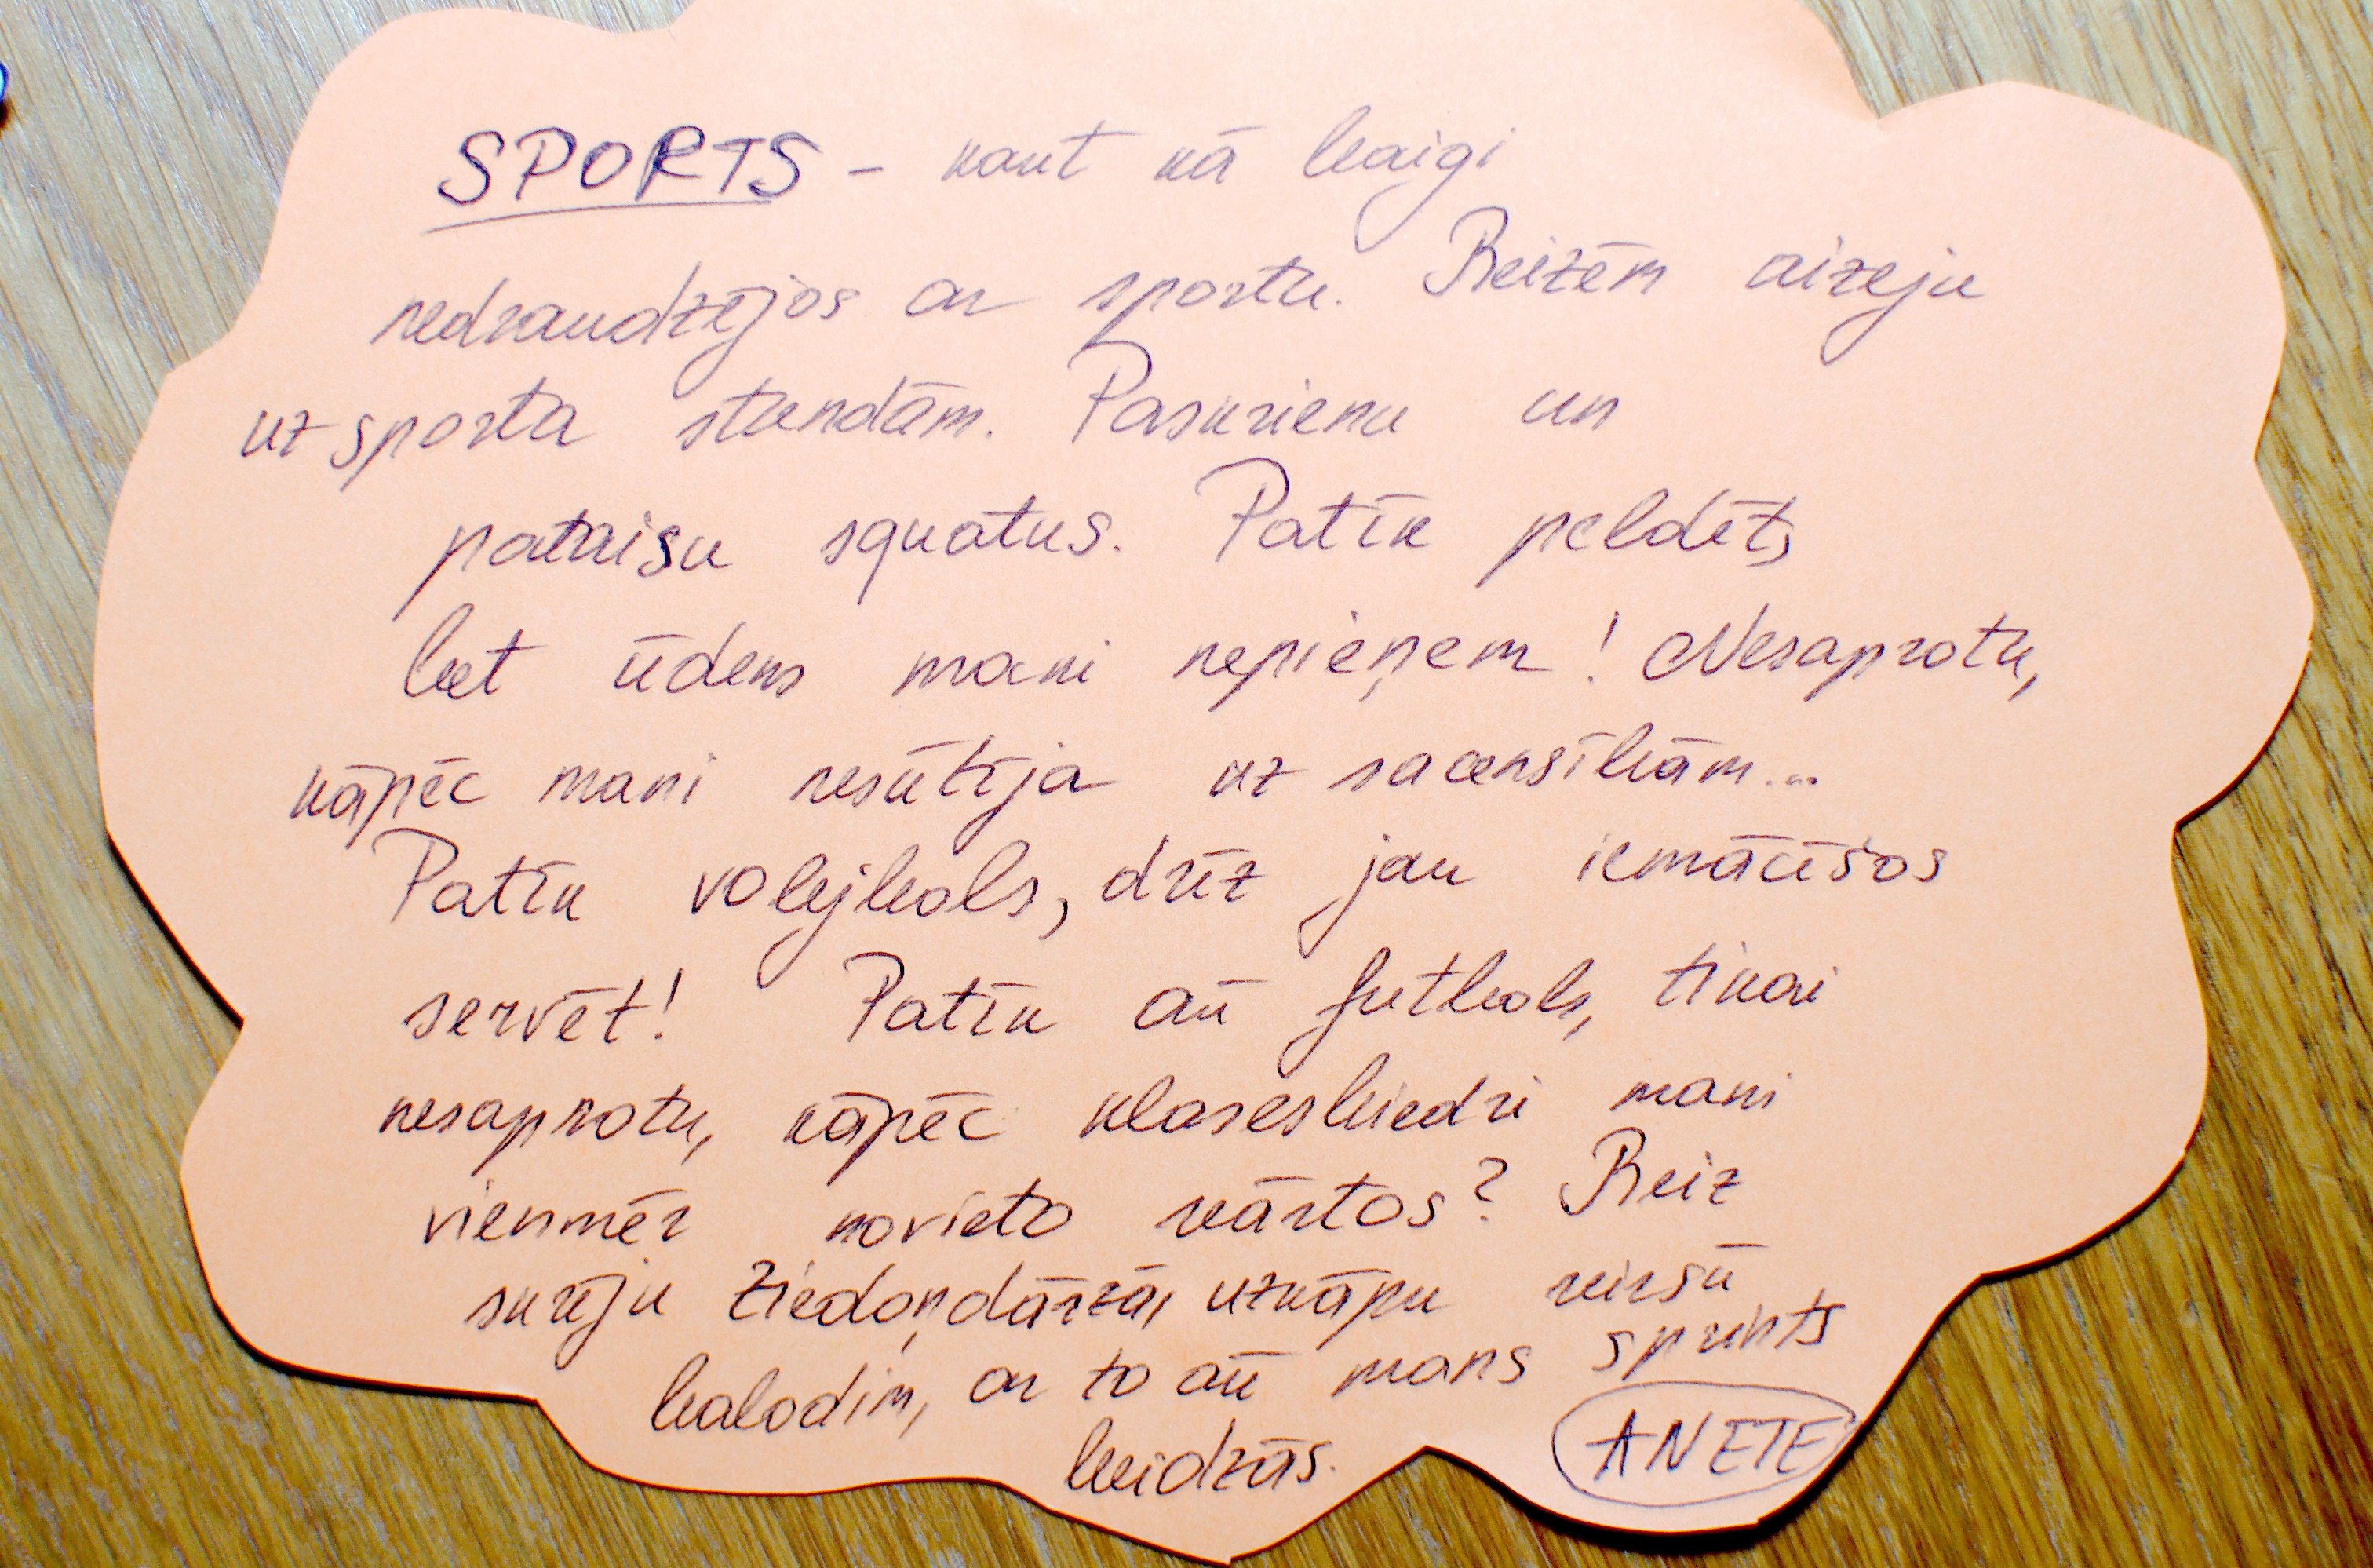 SPORTS – kaut kā baigi
nedraudzējos ar sportu. Reizēm aizeju
uz sporta stundām. Paskrienu un
pataisu squatus. Patīk peldēt,
bet ūdens mani nepieņem! Nesaprotu,
kāpēc mani nesūtīja uz sacensībām...
Patīk volejbols, drīz jau iemācīšos
servēt! Patīk arī futbols, tikai
nesaprotu, kāpēc klasesbiedri mani
vienmēr novieto vārtos? Reiz
skrēju Ziedoņdārzā, uzkāpu virsū
balodim, ar to arī mans sprints
beidzās.
ANETE